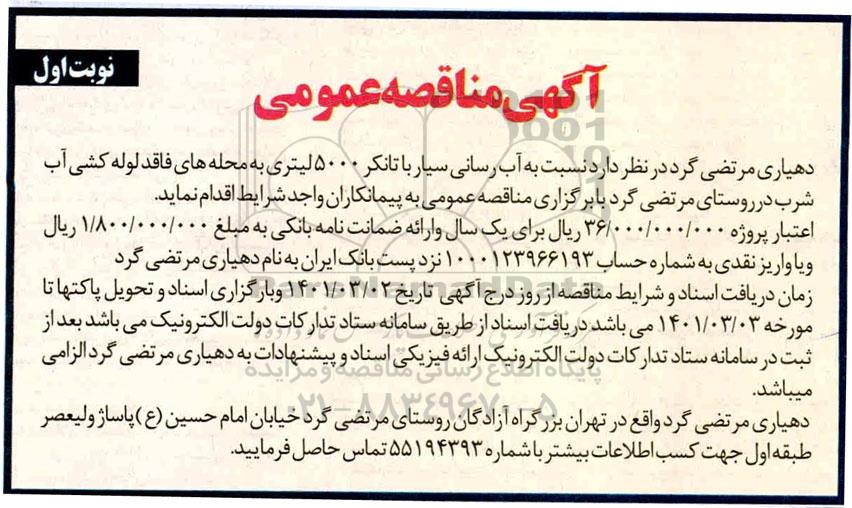 نوبت اول
آگهی مناقصه عمومی
دهیاری مرتضی گرد در نظر دارد نسبت به آب رسانی سیار با تانکر ۵۰۰۰ لیتری به محله های فاقد لوله کشی آب
شرب در روستای مرتضی گرد با برگزاری مناقصه عمومی به پیمانکاران واجد شرایط اقدام نماید.
اعتبار پروژه ۳۶/۰۰۰/۰۰۰/۰۰۰ ریال برای یک سال وارائه ضمانت نامه بانکی به مبلغ ۱/۸۰۰/۰۰۰/۰۰۰ ریال
ویا واریز نقدی به شماره حساب ۱۰۰۰۱۲۳۹۶۶۱۹۳ نزد پست بانک ایران به نام دهیاری مرتضی گرد
زمان دریافت اسناد و شرایط مناقصه از روز درج آگهی تاریخ ۱۴۰۱/۰۳/۰۲ وبارگزاری اسناد و تحویل پاکتها تا
مورخه ۱۴۰۱/۰۳/۰۳ می باشد دریافت اسناد از طریق سامانه ستاد تدارکات دولت الکترونیک می باشد بعد از
ثبت در سامانه ستاد تدارکات دولت الکترونیک ارائه فیزیکی اسناد و پیشنهادات به دهیاری مرتضی گرد الزامی
میباشد.
دهیاری مرتضی گرد واقع در تهران بزرگراه آزادگان روستای مرتضی گرد خیابان امام حسین (ع) پاساژ ولیعصر
طبقه اول جهت کسب اطلاعات بیشتر با شماره ۵۵۱۹۴۳۹۳ تماس حاصل فرمایید.
ParsNamadData
پایگاه اطلاع رسانی مناقصه و مزایده
۰۲۱-۸۸۳۴۹۶۷۰-۵